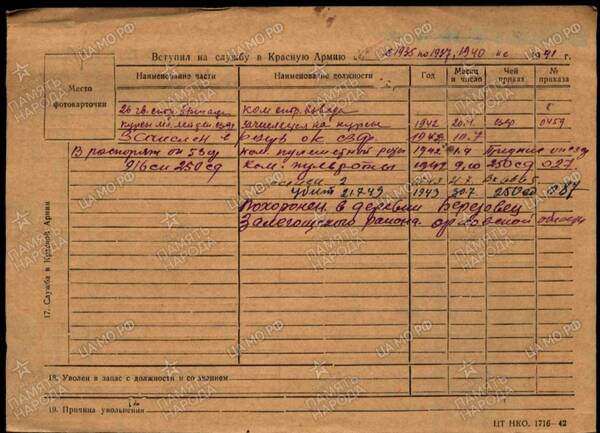 Вступил на службу в Красную Армию с 1935 по 1937, 1940 ис 1941 г.
Место фотокарточки
Наименование части
Наименование должности
Год
Месяц и число
Чей приказ
№ приказа
26 гв. стр. бригада ком. стр. взвода
зачислен на курсы 1942 20.4 СЗФ 0459
Зачислен в резерв ОК СЗФ 1942 10.7
В распоряж. ок 53 ск ком. пулеметной роты 1942
916 сп 250 сд Ком. пулроты 1942 9.10 250 сд 027
убит 21.7.43 1943 30.7 250 сд 087
Похоронен в деревни Березовец
Залегощского района Орловской области
17. Служба в Красной Армии
18. Уволен в запас с должности и со званием
19. Причина увольнения
ЦТ НКО. 1716—42
ПАМЯТЬ НАРОДА
ЦАМО.РФ